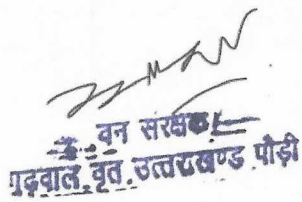 वन संरक्षक
गढ़वाल वृत उत्तराखण्ड पौड़ी